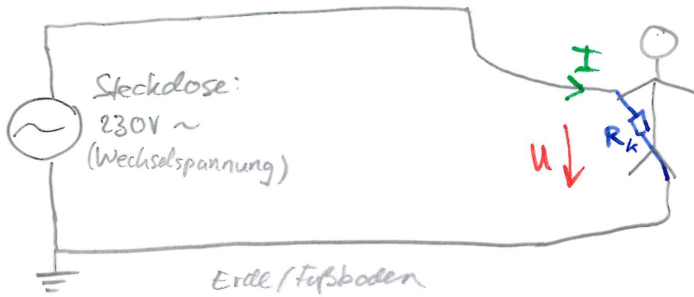 Steckdose:
230V ~
(Wechselspannung)
I
U
Rk
Erde/Fußboden